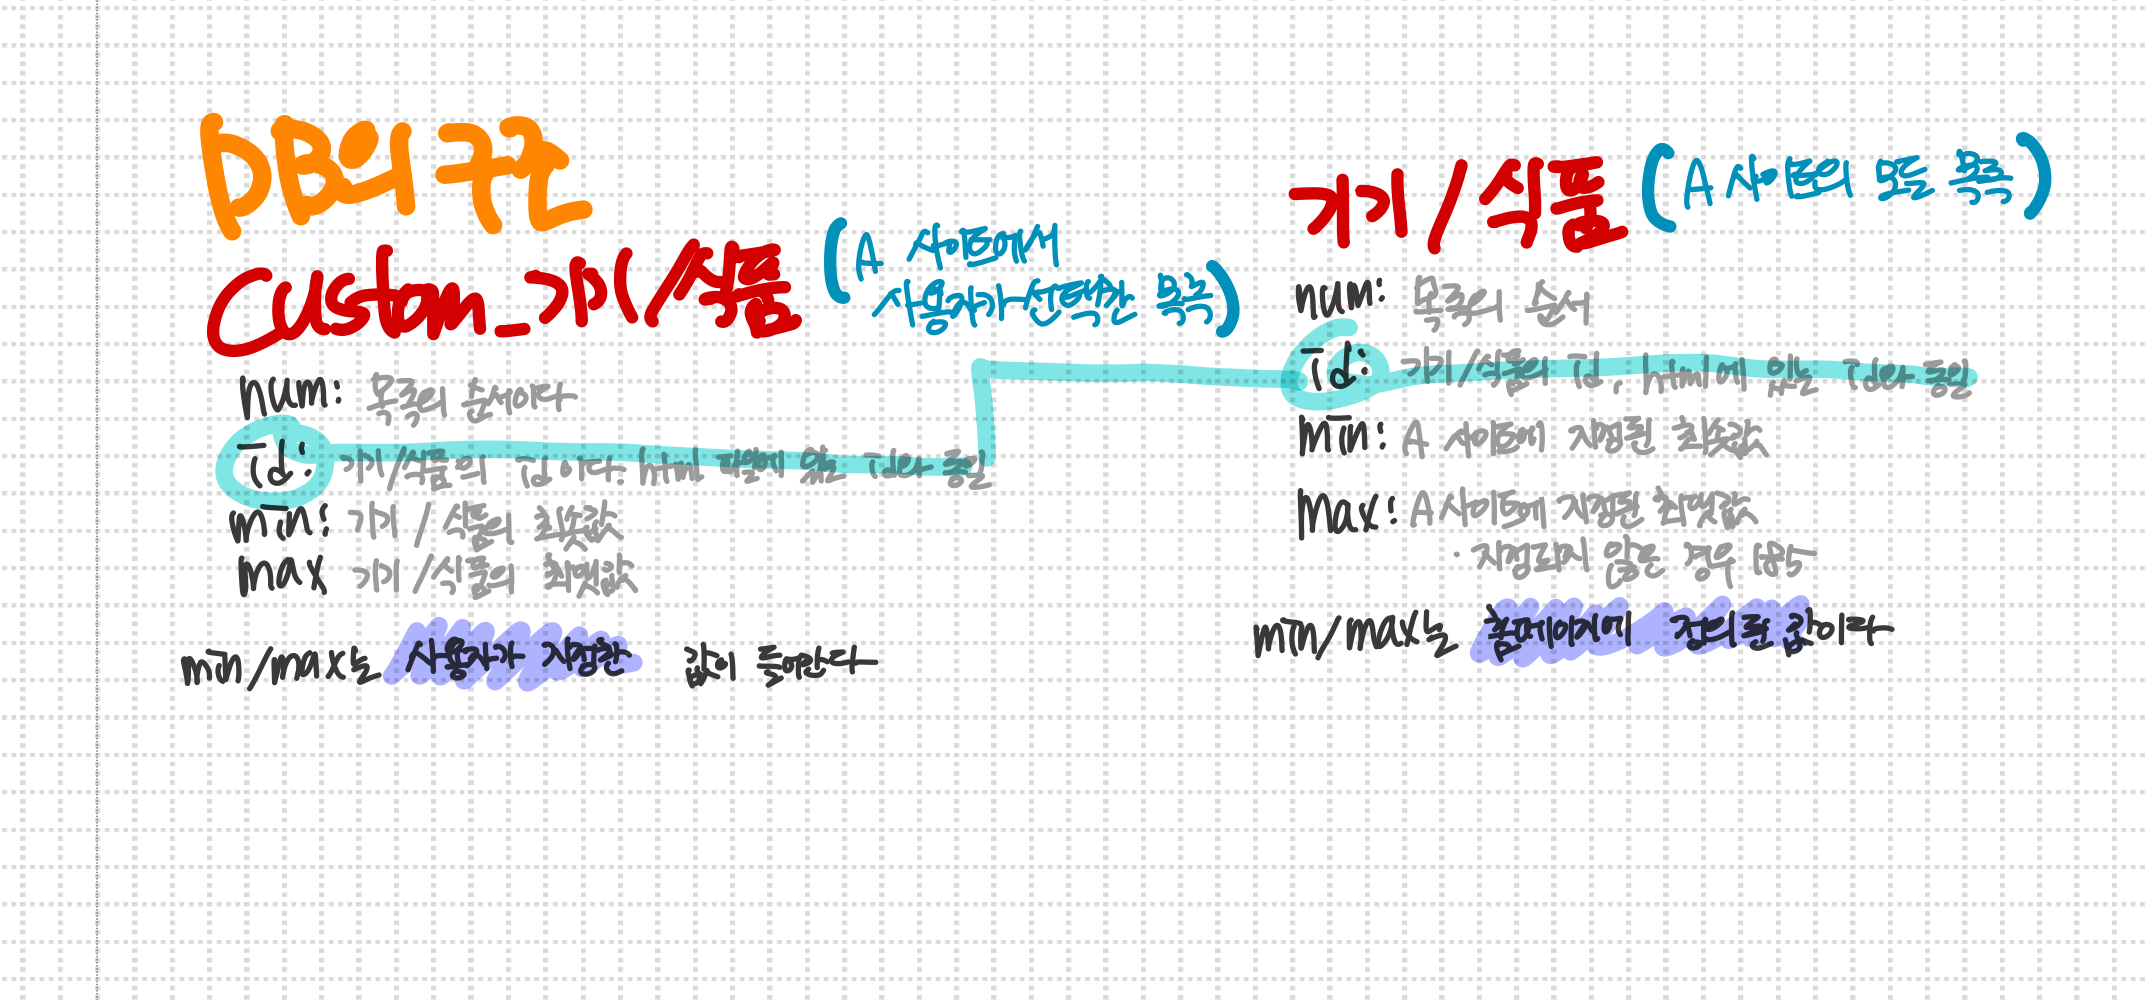 DB의 구조
Custom_기기/식품 (A 사이트에서
사용자가 선택한 목록)
num: 목록의 순서이다
id: 기기/식품의 id이다. html 파일에 있는 id와 동일
min: 기기/식품의 최솟값
max 기기/식품의 최댓값
min/max는 사용자가 지정한 값이 들어간다
기기/식품 (A 사이트의 모든 목록)
num: 목록의 순서
id: 기기/식품의 id, html에 있는 id와 동일
min: A 사이트에 지정된 최솟값
max: A사이트에 지정된 최댓값
· 지정되지 않은 경우 185
min/max는 홈페이지에 정의된 값이다